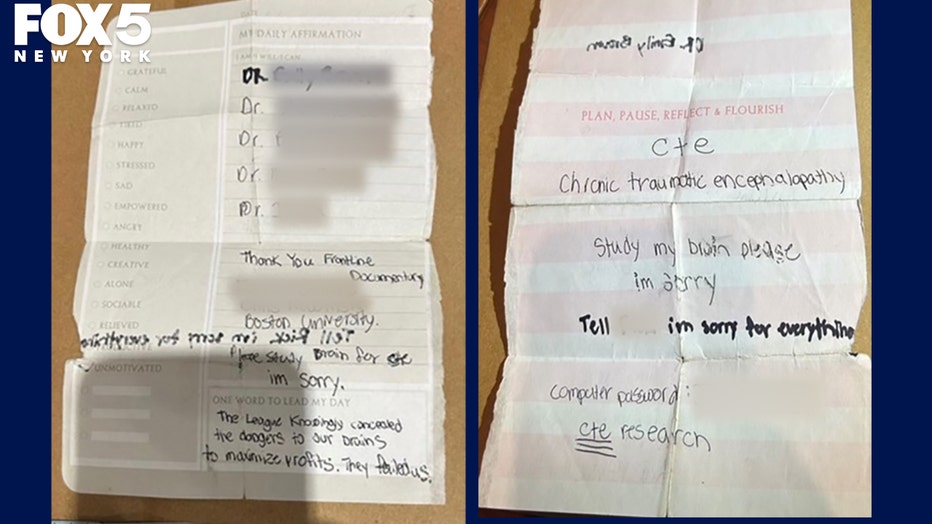 FOX 5
NEW YORK
DATE
MY DAILY AFFIRMATION
I AM/I WILL/I CAN
GRATEFUL
CALM
RELAXED
TIRED
HAPPY
STRESSED
SAD
EMPOWERED
ANGRY
HEALTHY
CREATIVE
ALONE
SOCIABLE
RELIEVED
UNMOTIVATED
DR
Dr.
Dr.
Dr.
Dr.
Thank You Frontline
Documentary
Boston University.
Please study Brain for cte
im sorry.
ONE WORD TO LEAD MY DAY
The League Knowingly concealed
the dangers to our brains
to maximize profits. They failed us.
PLAN, PAUSE, REFLECT & FLOURISH
cte
Chronic traumatic encephalopathy
Study my brain please
im sorry
Tell im sorry for everything
computer password:
cte research